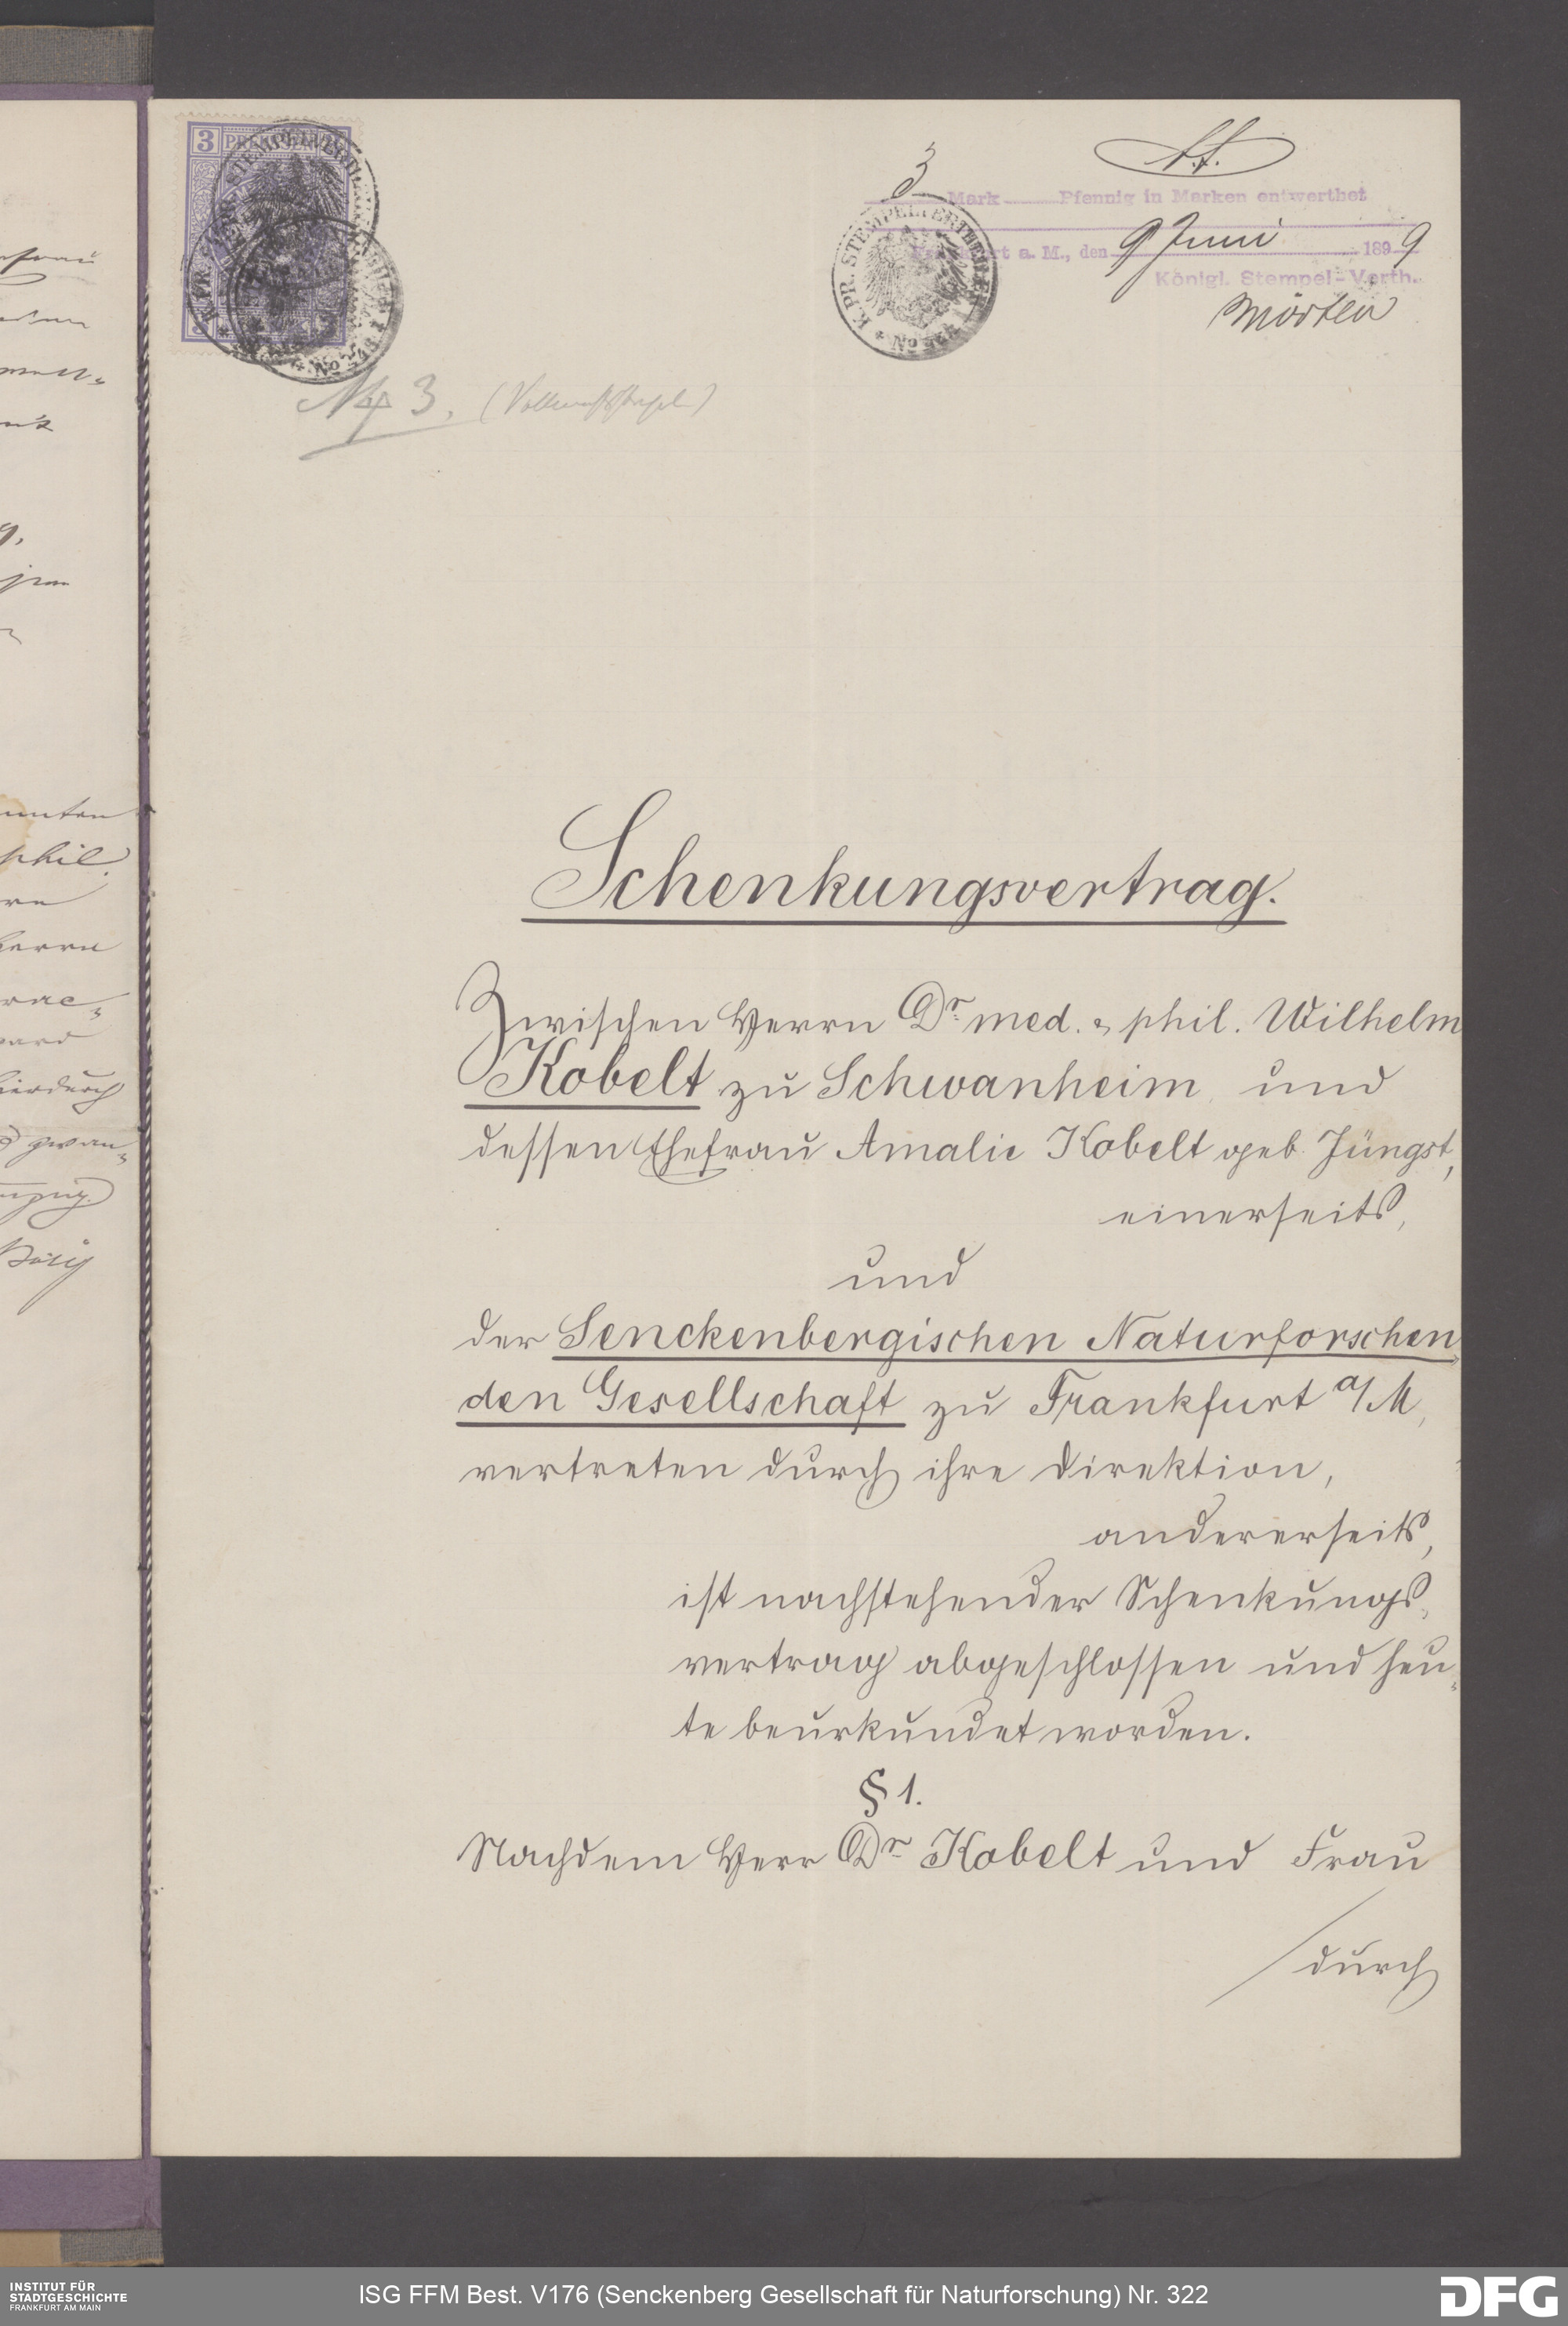 3 PREUSSEN
K. PR. STEMPELVERTHEILER
3 Mark Pfennig in Marken entwerthet
Frankfurt a. M., den 9 Juni 1899
Königl. Stempel-Verth.
K. PR. STEMPELVERTHEILER
3,
Schenkungsvertrag.
Zwischen Herrn Dr. med. & phil. Wilhelm
Kobelt zu Schwanheim, und
dessen Ehefrau Amalie Kobelt geb. Jüngst,
einerseits,
und
der Senckenbergischen Naturforschen-
den Gesellschaft zu Frankfurt a/M,
vertreten durch ihre Direktion,
andererseits,
ist nachstehender Schenkungs-
vertrag abgeschlossen und heu-
te beurkundet worden.
§ 1.
Nachdem Herr Dr Kobelt und Frau
/durch
unten
phil.
herrn
hierdurch
INSTITUT FÜR
STADTGESCHICHTE
FRANKFURT AM MAIN
ISG FFM Best. V176 (Senckenberg Gesellschaft für Naturforschung) Nr. 322
DFG